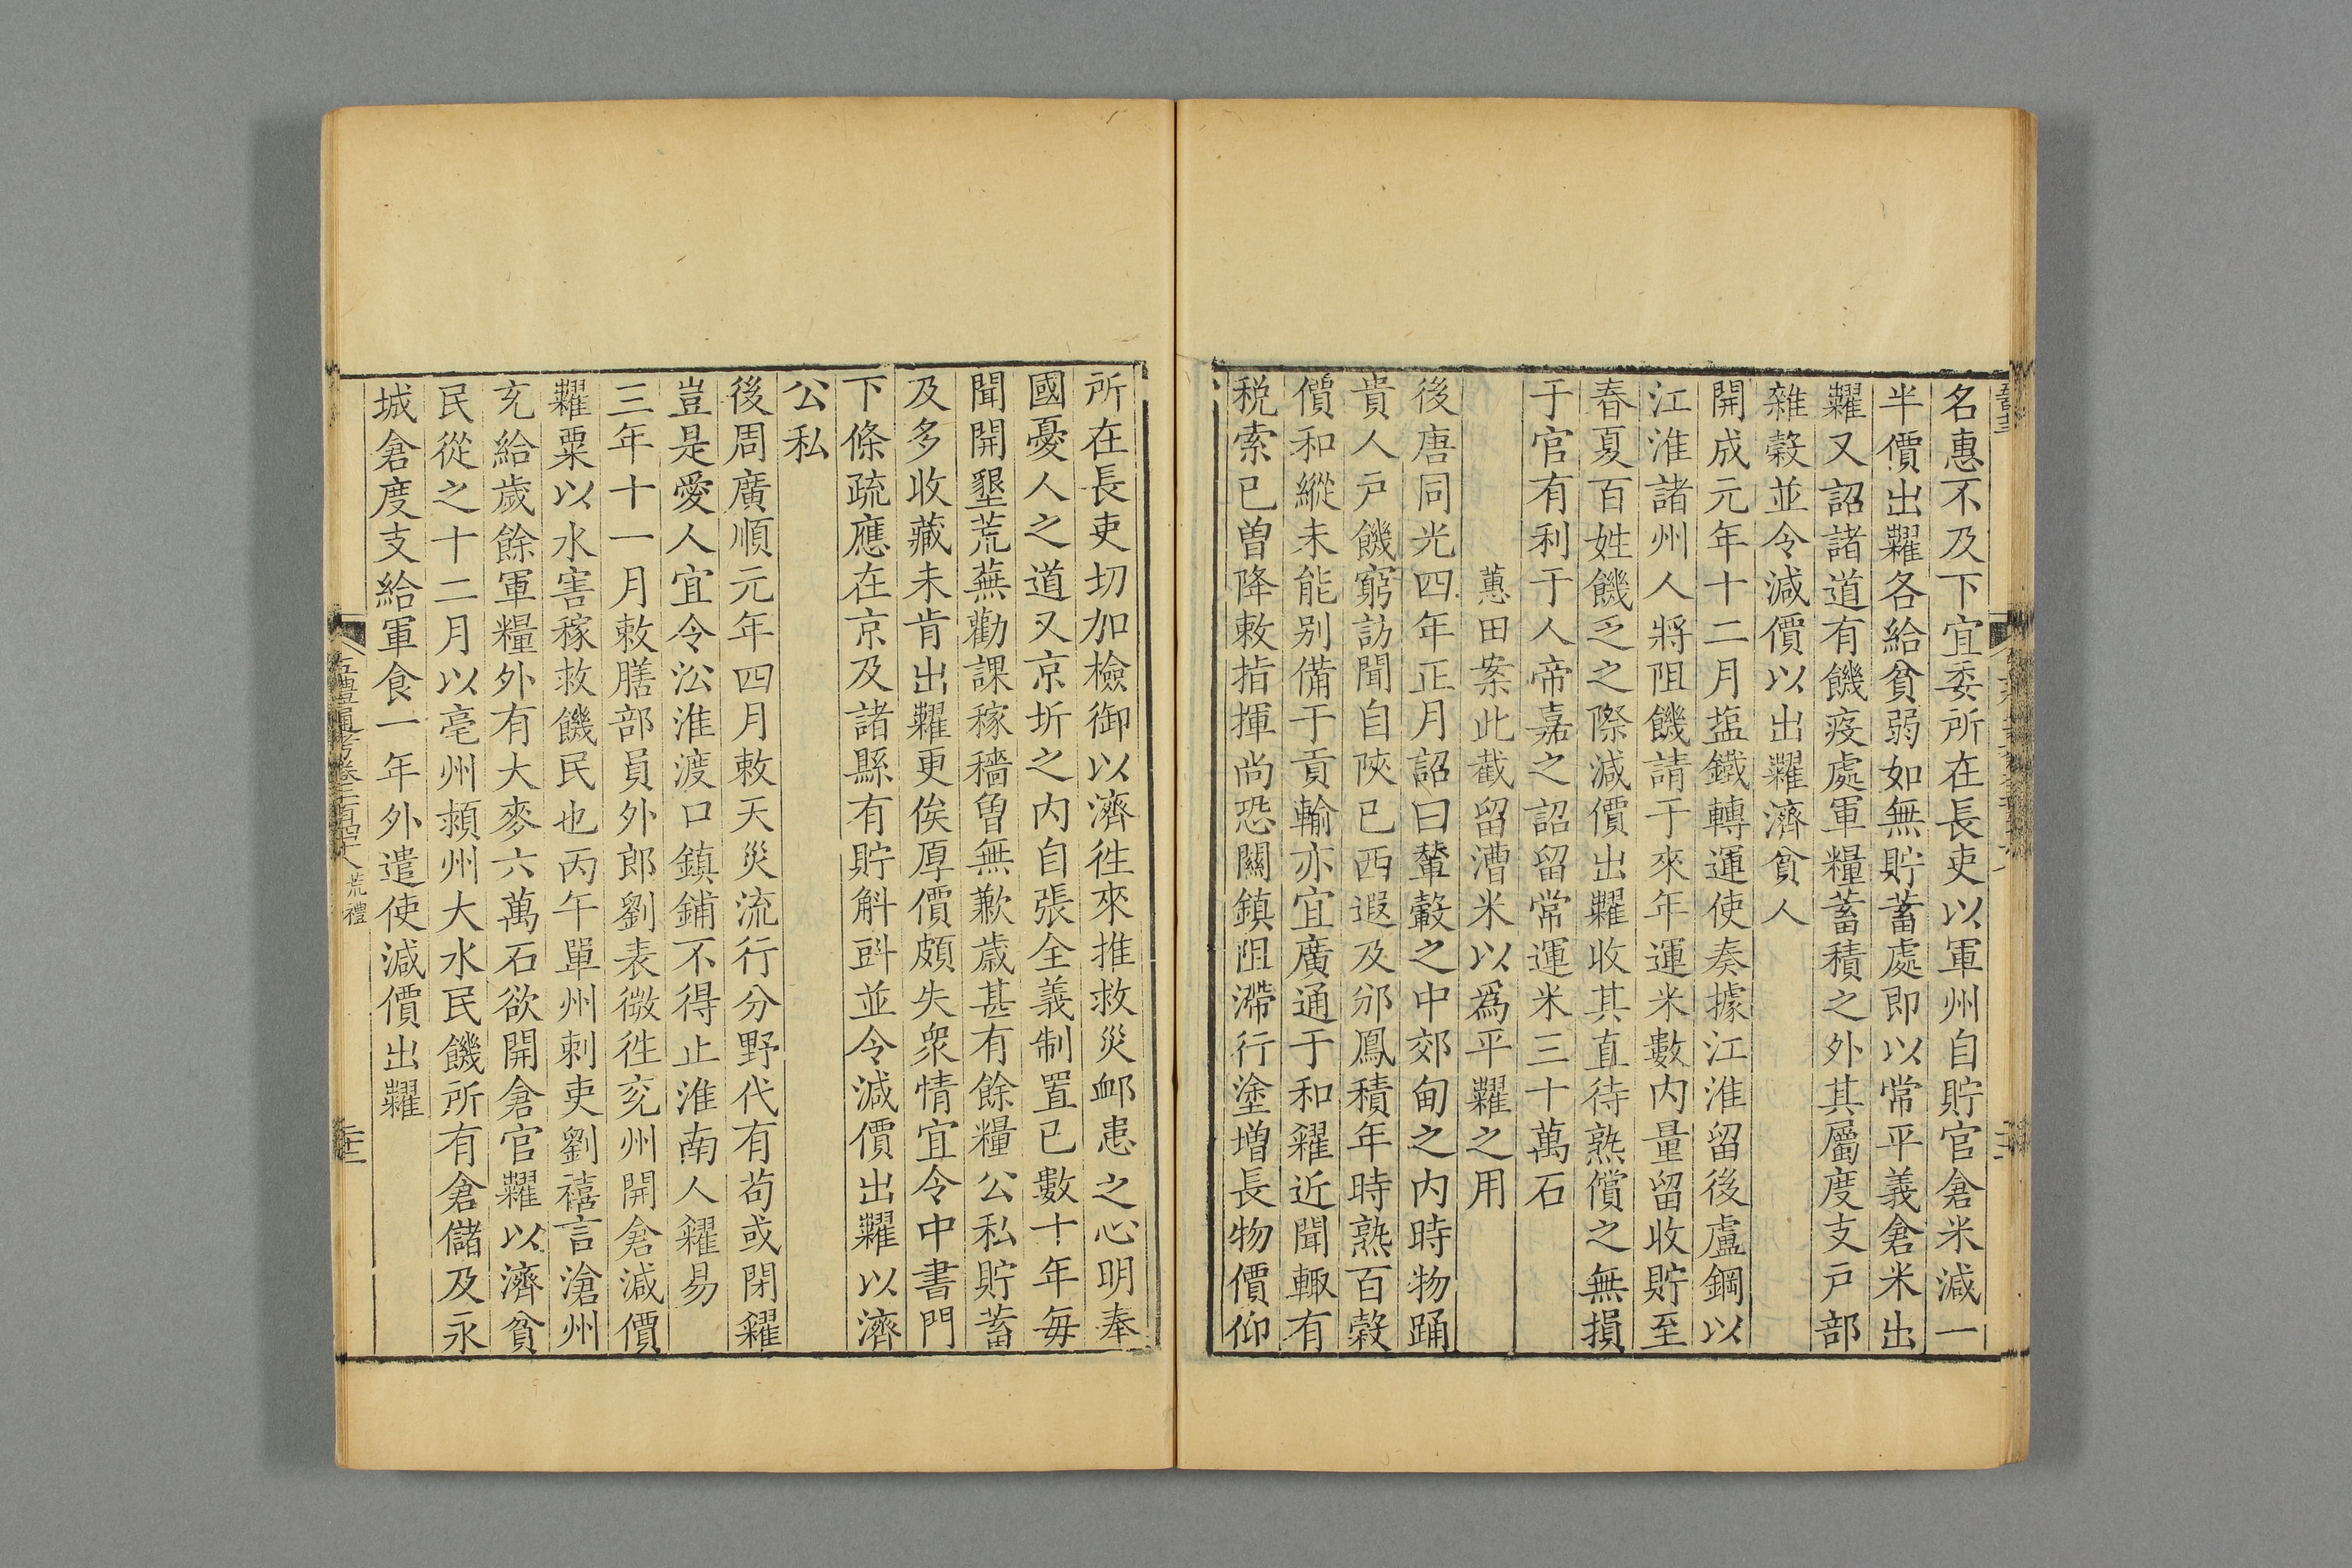 名惠不及下宜委所在長吏以軍州自貯官倉米減一
半價出糶各給貧弱如無貯蓄處即以常平義倉米出
糶又詔諸道有饑疫處軍糧蓄積之外其屬度支戶部
雜穀並令減價以出糶濟貧人
開成元年十二月鹽鐵轉運使奏據江淮留後盧鋼以
江淮諸州人將阻饑請于來年運米數內量留收貯至
春夏百姓饑乏之際減價出糶收其直待熟償之無損
于官有利于人帝嘉之詔留常運米三十萬石
蕙田案此截留漕米以爲平糶之用
後唐同光四年正月詔曰輦轂之中郊甸之內時物踊
貴人戶饑窮訪聞自陝已西遐及邠鳳積年時熟百穀
價和縱未能别備于貢輸亦宜廣通于和糴近聞輙有
稅索已曾降敕指揮尚恐關鎮阻滯行塗增長物價仰
所在長吏切加檢御以濟徃來推救災卹患之心明奉
國憂人之道又京圻之内自張全義制置已數十年每
聞開墾荒蕪勸課稼穡曾無歉歳甚有餘糧公私貯蓄
及多收藏未肯出糶更俟厚價頗失衆情宜令中書門
下條疏應在京及諸縣有貯斛㪷並令減價出糶以濟
公私
後周廣順元年四月敕天災流行分野代有苟或閉糴
豈是愛人宜令㳂淮渡口鎮鋪不得止淮南人糴易
三年十一月敕膳部員外郎劉表微徃兖州開倉減價
糶粟以水害稼救饑民也丙午單州刺吏劉禧言滄州
充給歲餘軍糧外有大麥六萬石欲開倉官糶以濟貧
民從之十二月以亳州頴州大水民饑所有倉儲及永
城倉度支給軍食一年外遣使減價出糶
五禮通考卷二百四十八 荒禮